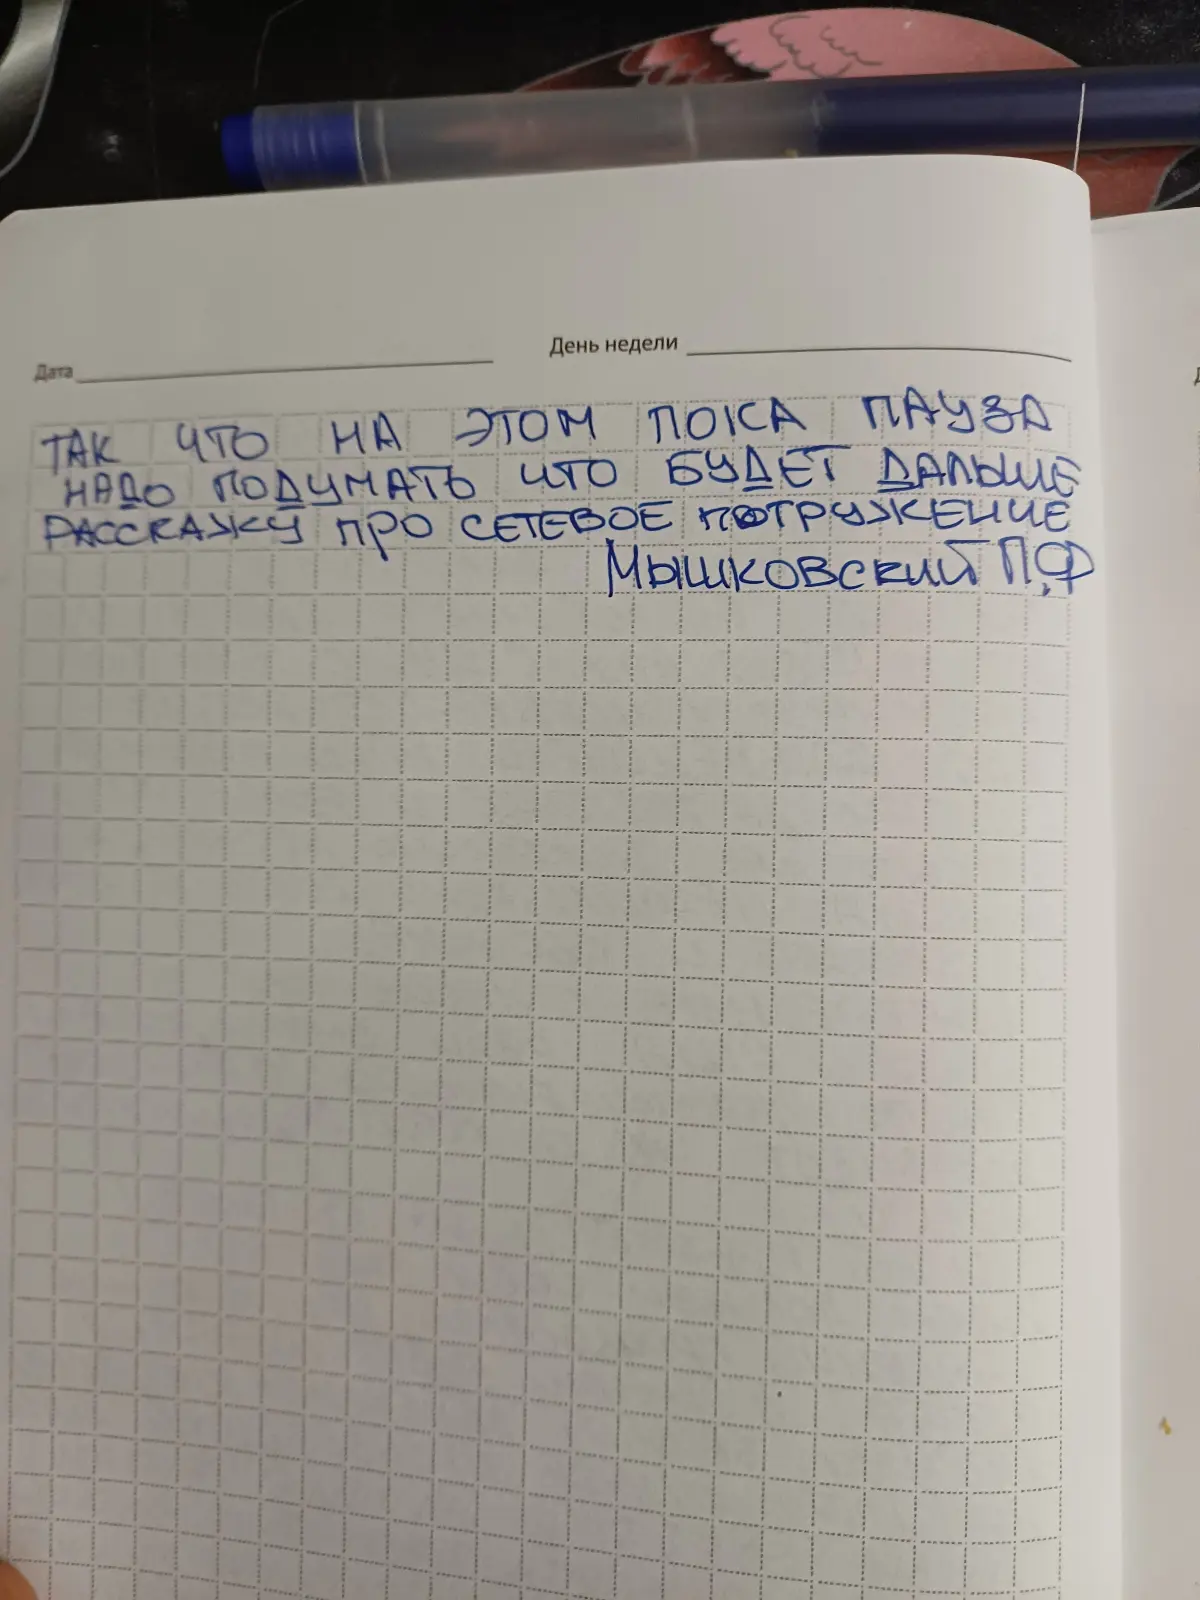 Дата День недели
ТАК ЧТО НА ЭТОМ ПОКА ПАУЗА
НАДО ПОДУМАТЬ ЧТО БУДЕТ ДАЛЬШЕ
РАССКАЖУ ПРО СЕТЕВОЕ ПОГРУЖЕНИЕ
МЫШКОВСКИЙ П.Ф